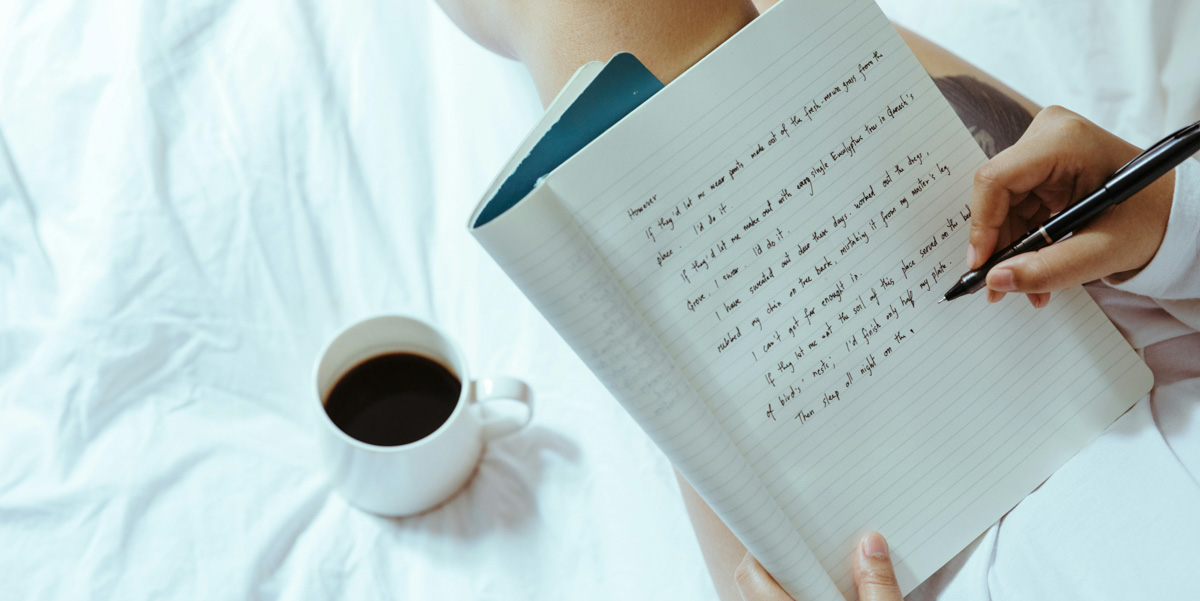 However
If they'd let me wear pants made out of the fresh-morning grass from the
place. I'd do it.
If they'd let me make out with every single Eucalyptus tree in Ganesh's
Grove, I swear. I'd do it.
I have sweated out dear these days. worked out the dregs,
rubbed my chin on tree bark, mistaking it from my master's leg.
I can't get far enough in.
If they let me eat the soil of this place served on the bed
of bird's nests; I'd finish only half my plate.
Then sleep all night on the